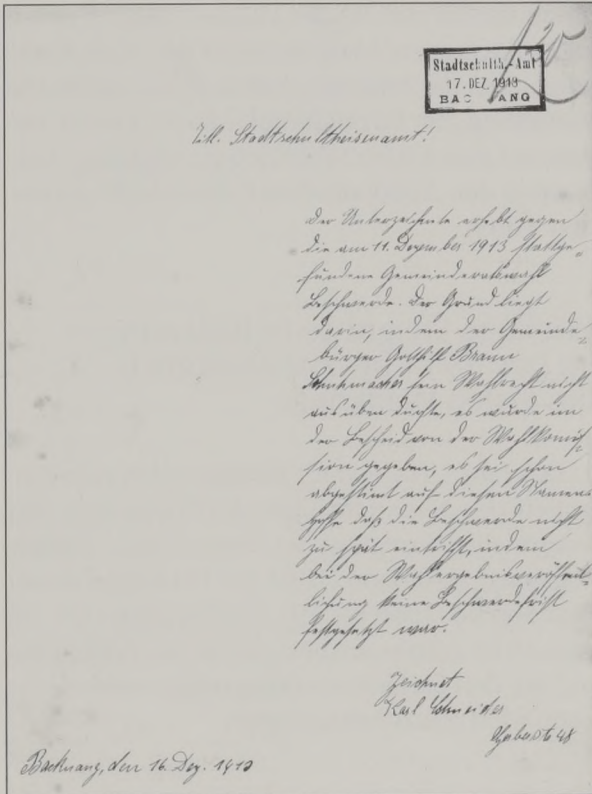 120
Stadtschulth.-Amt
17. DEZ. 1913
BACKNANG
Titl. Stadtschultheisenamt!
Der Unterzeichnete erhebt gegen
die am 11. Dezember 1913 stattge-
fundene Gemeinderatswahl
Beschwerde. Der Grund liegt
darin, indem der Gemeinde-
bürger Gotthilf Braun
Schuhmacher sein Wahlrecht nicht
ausüben durfte, es wurde im
der Bescheid von der Wahlkomis-
sion gegeben, es sei schon
abgestimt auf diesen Namen
hoffe daß die Beschwerde nicht
zu spät eintrifft, indem
bei der Wahlergebnisveröffent-
lichung keine Beschwerdefrist
festgesetzt war.
Zeichnet
Karl Schneider
48
Backnang, den 16. Dez. 1913